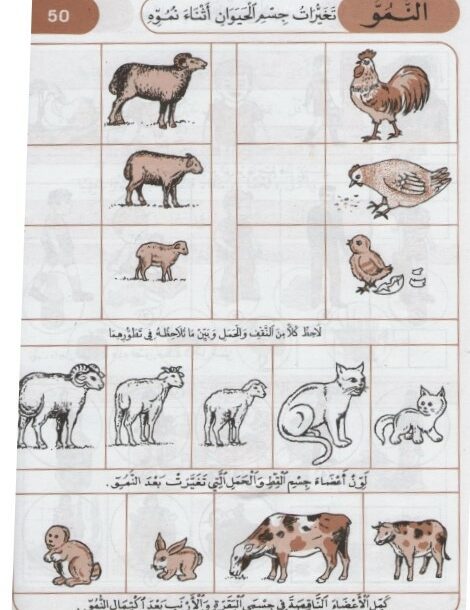 النُّمُوُّ
تَغَيُّرَاتُ جِسْمِ الْحَيَوَانِ أَثْنَاءَ نُمُوِّهِ
50
لَاحِظْ كُلًّا مِنَ النَّقْفِ وَالْحَمَلِ وَبَيِّنْ مَا تُلَاحِظُهُ فِي تَطَوُّرِهِمَا
لَوِّنْ أَعْضَاءَ جِسْمِ الْقِطِّ وَالْحَمَلِ الَّتِي تَغَيَّرَتْ بَعْدَ النُّمُوِّ.
كَمِّلِ الْأَعْضَاءَ النَّاقِصَةَ فِي جِسْمَيِ الْبَقَرَةِ وَالْأَرْنَبِ بَعْدَ اكْتِمَالِ النُّمُوِّ.